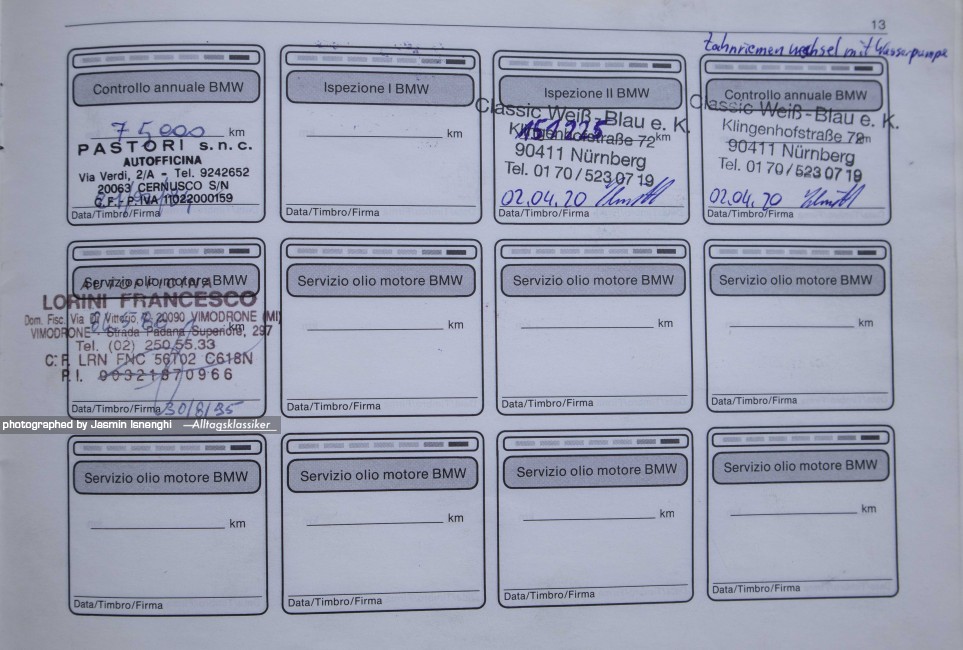 13
Zahnriemen wechsel mit Wasserpumpe
Controllo annuale BMW
75000 km
PASTORI s.n.c.
AUTOFFICINA
Via Verdi, 2/A - Tel. 9242652
20063 CERNUSCO S/N
C.F. - P. IVA 11022000159
Data/Timbro/Firma
Ispezione I BMW
km
Data/Timbro/Firma
Ispezione II BMW
Classic Weiß-Blau e. K.
151225 km
Klingenhofstraße 72
90411 Nürnberg
Tel. 01 70 / 523 07 19
02.04.20
Controllo annuale BMW
Classic Weiß-Blau e. K.
Klingenhofstraße 72
km
90411 Nürnberg
Tel. 01 70 / 523 07 19
02.04.20
Servizio olio motore BMW
AUTOFFICINA
LORINI FRANCESCO
Dom. Fisc. Via Di Vittorio, 20090 VIMODRONE (MI)
km
VIMODRONE - Strada Padana Superiore, 297
Tel. (02) 250.55.33
C. F. LRN FNC 56T02 C618N
P. I. 90321870966
Data/Timbro/Firma 30/8/95
Servizio olio motore BMW
km
Data/Timbro/Firma
Servizio olio motore BMW
km
Data/Timbro/Firma
Servizio olio motore BMW
km
Data/Timbro/Firma
photographed by Jasmin Isnenghi —Alltagsklassiker
Servizio olio motore BMW
km
Data/Timbro/Firma
Servizio olio motore BMW
km
Data/Timbro/Firma
Servizio olio motore BMW
km
Data/Timbro/Firma
Servizio olio motore BMW
km
Data/Timbro/Firma